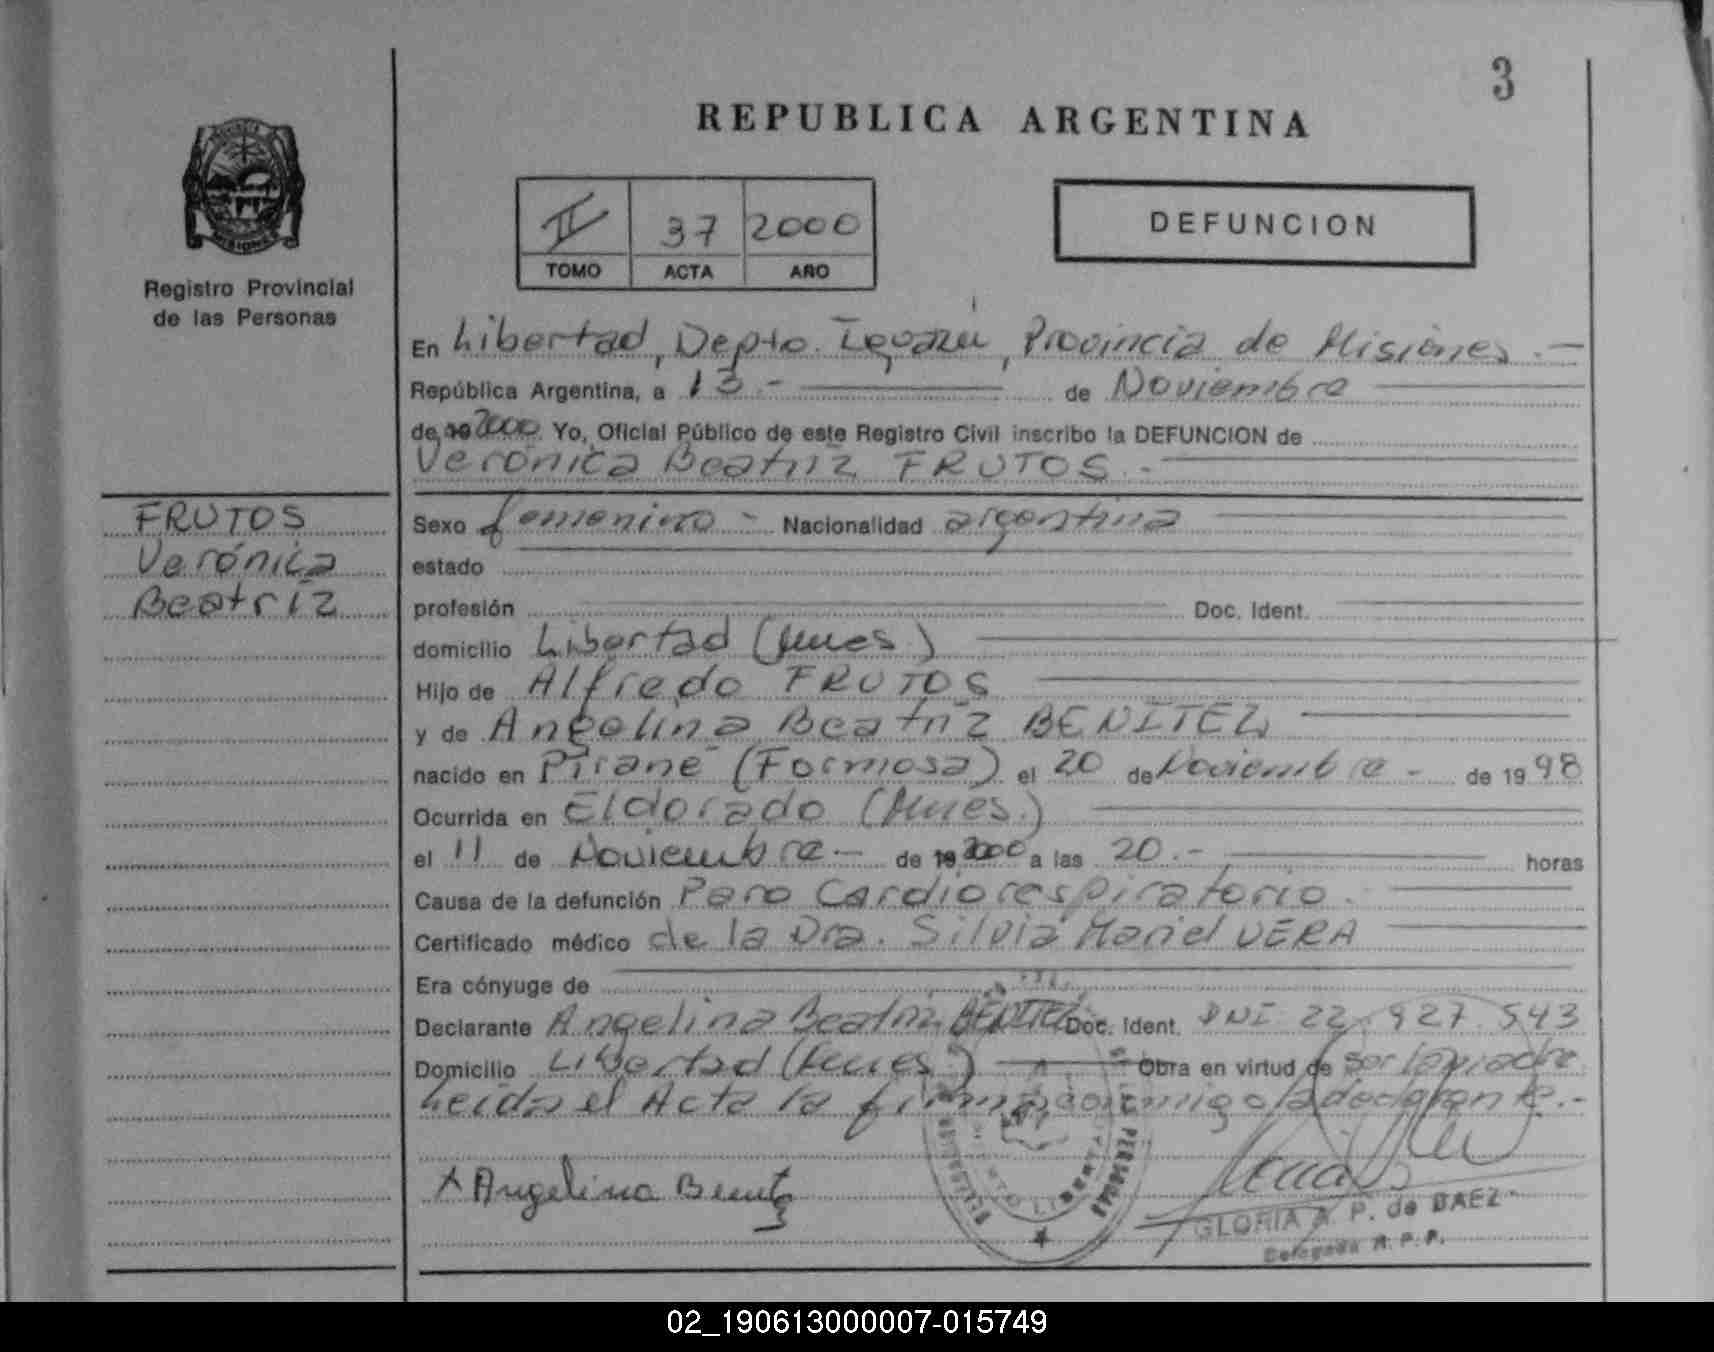 3
REPUBLICA ARGENTINA
PROVINCIA
MISIONES
Registro Provincial
de las Personas
II 37 2000
TOMO ACTA AÑO
DEFUNCION
En Libertad, Depto. Iguazú, Provincia de Misiones.-
República Argentina, a 13.- de Noviembre
de 19 2000 Yo, Oficial Público de este Registro Civil inscribo la DEFUNCION de
Verónica Beatriz FRUTOS.-
FRUTOS
Verónica
Beatriz
Sexo femenino - Nacionalidad argentina
estado
profesión Doc. Ident.
domicilio Libertad (Mnes.)
Hijo de Alfredo FRUTOS
y de Angelina Beatriz BENITEZ
nacido en Pirané (Formosa) el 20 de Noviembre - de 1998
Ocurrida en Eldorado (Mnes.)
el 11 de Noviembre - de 19 2000 a las 20.- horas
Causa de la defunción Paro Cardiorespiratorio.
Certificado médico de la Dra. Silvia Mariel VERA
Era cónyuge de
Declarante Angelina Beatriz BENITEZ Doc. Ident. DNI 22.927.543
Domicilio Libertad (Mnes.) Obra en virtud de ser la madre
Leida el Acta la firma conmigo la declarante.-
Angelina Benitez
GLORIA A. P. de BAEZ
Delegada R. P. P.
02_190613000007-015749